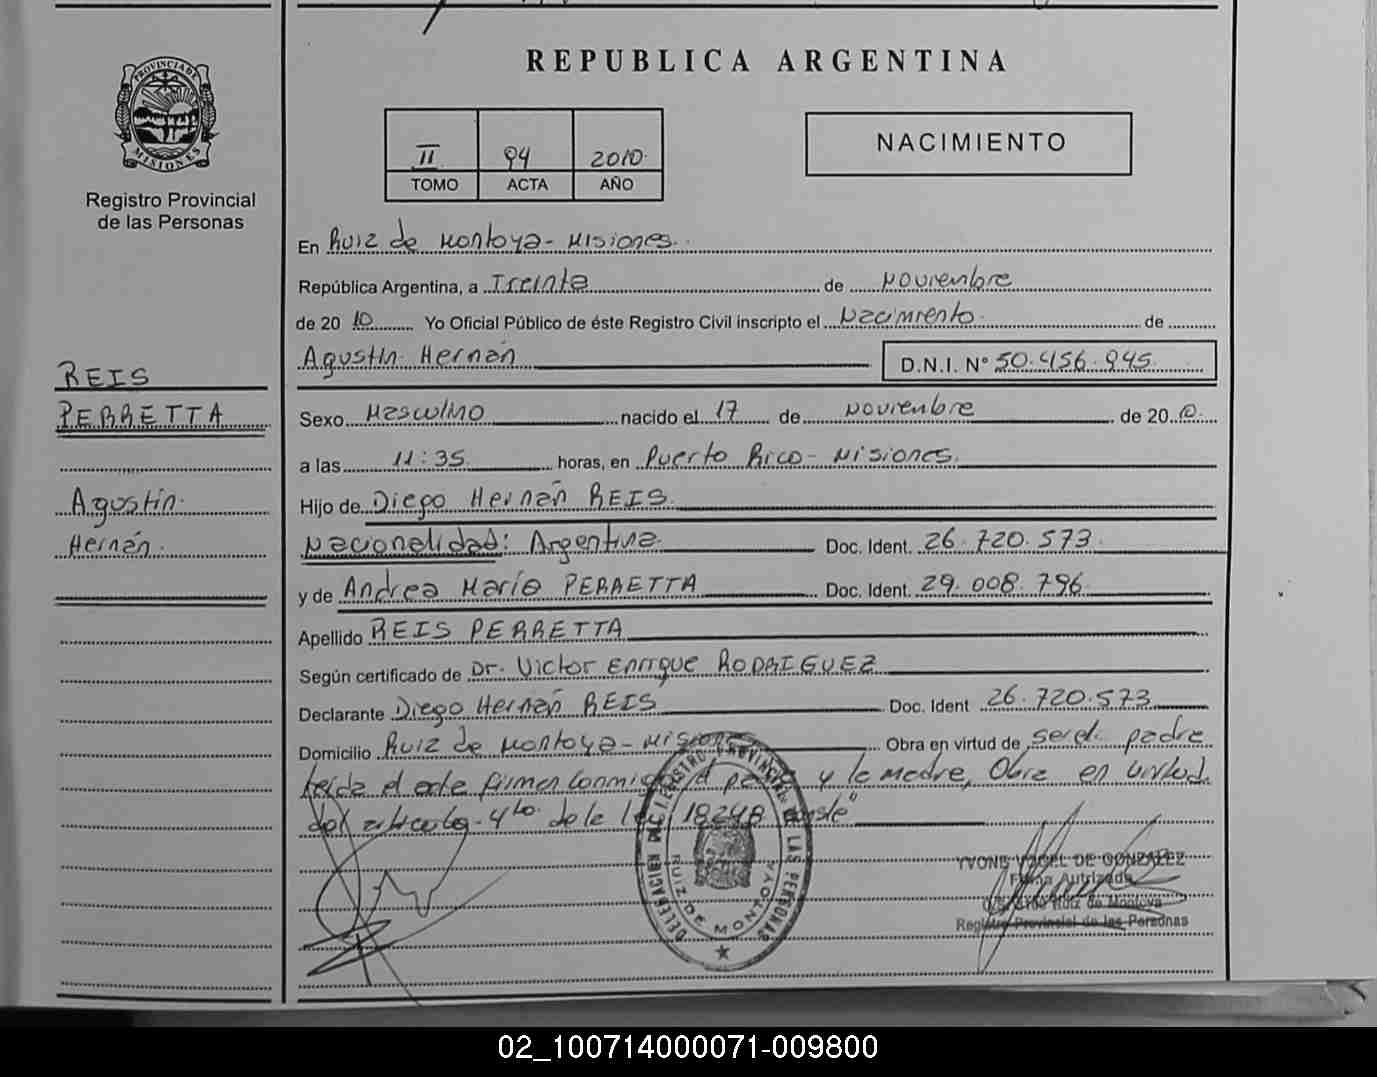 REPUBLICA ARGENTINA
PROVINCIA DE MISIONES
Registro Provincial
de las Personas
II 94 2010
TOMO ACTA AÑO
NACIMIENTO
En Ruiz de Montoya - Misiones.
República Argentina, a Treinta de Noviembre
de 20 10 Yo Oficial Público de éste Registro Civil inscripto el Nacimiento de
Agustín Hernán D.N.I. Nº 50.456.945.
REIS
PERRETTA
Agustín
Hernán.
Sexo Masculino nacido el 17 de noviembre de 20 10.
a las 11:35 horas, en Puerto Rico - Misiones.
Hijo de Diego Hernán REIS
Nacionalidad: Argentina Doc. Ident. 26.720.573
y de Andrea María PERRETTA Doc. Ident. 29.008.796
Apellido REIS PERRETTA
Según certificado de Dr. Victor Enrique RODRIGUEZ
Declarante Diego Hernán REIS Doc. Ident 26.720.573
Domicilio Ruiz de Montoya - Misiones Obra en virtud de ser el padre
el acta firman conmigo el padre y la madre, Obra en virtud
del artículo 4to de la ley 18248 conste"
DELEGACION DEL REGISTRO PROVINCIAL DE LAS PERSONAS
RUIZ DE MONTOYA
YVONE VOGEL DE GONZALEZ
Firma Autrizada
Ruiz de Montoya
Registro Provincial de las Personas
02_100714000071-009800